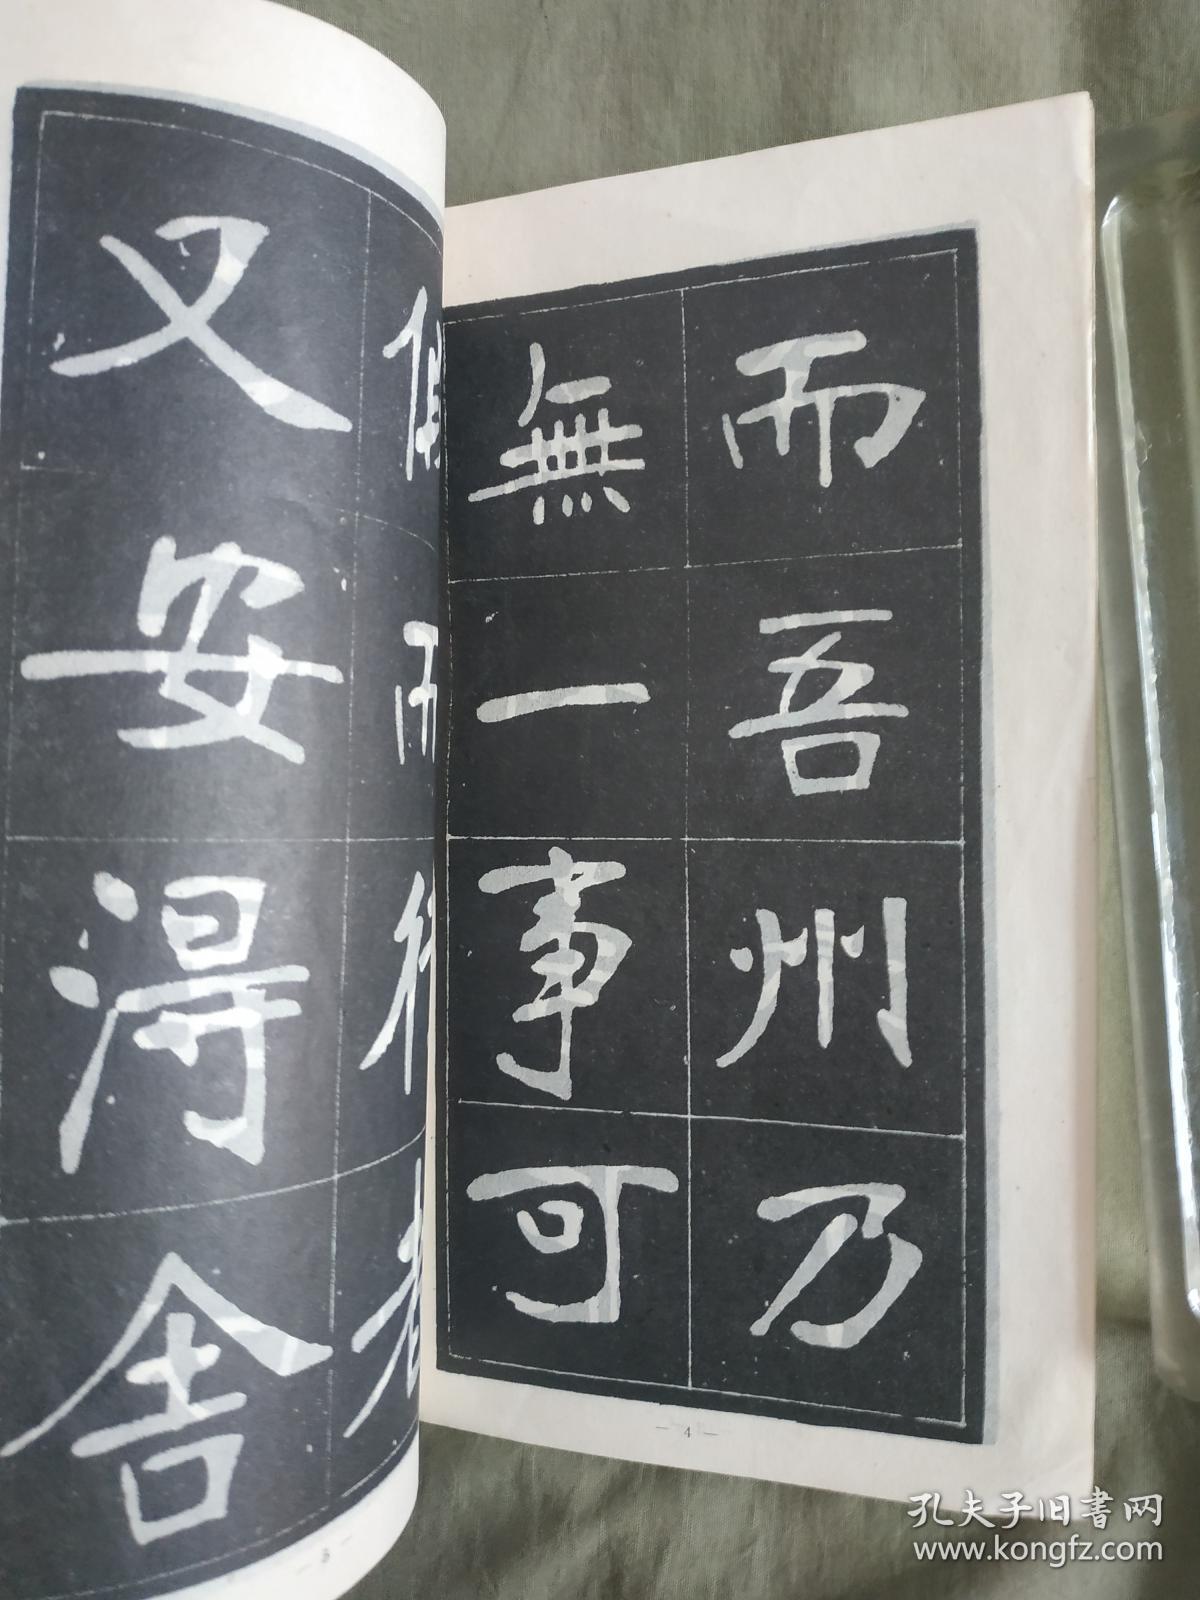 又安淂舍
3
而吾州乃
無一事可
— 4 —
孔夫子旧書网
www.kongfz.com